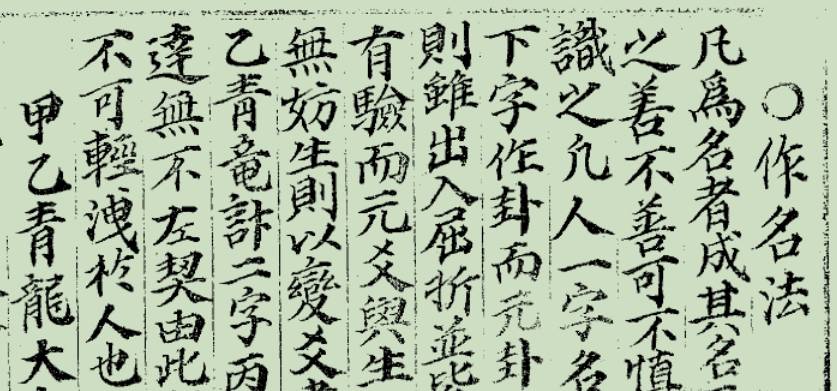 ○作名法
凡爲名者成其名
之善不善可不慎
識之凡人一字名
下字作卦而元卦
則雖出入屈折並
有驗而元爻與生
無妨生則以變爻
乙青竜計二字丙
達無不左契由此
不可輕洩於人也
甲乙青龍大